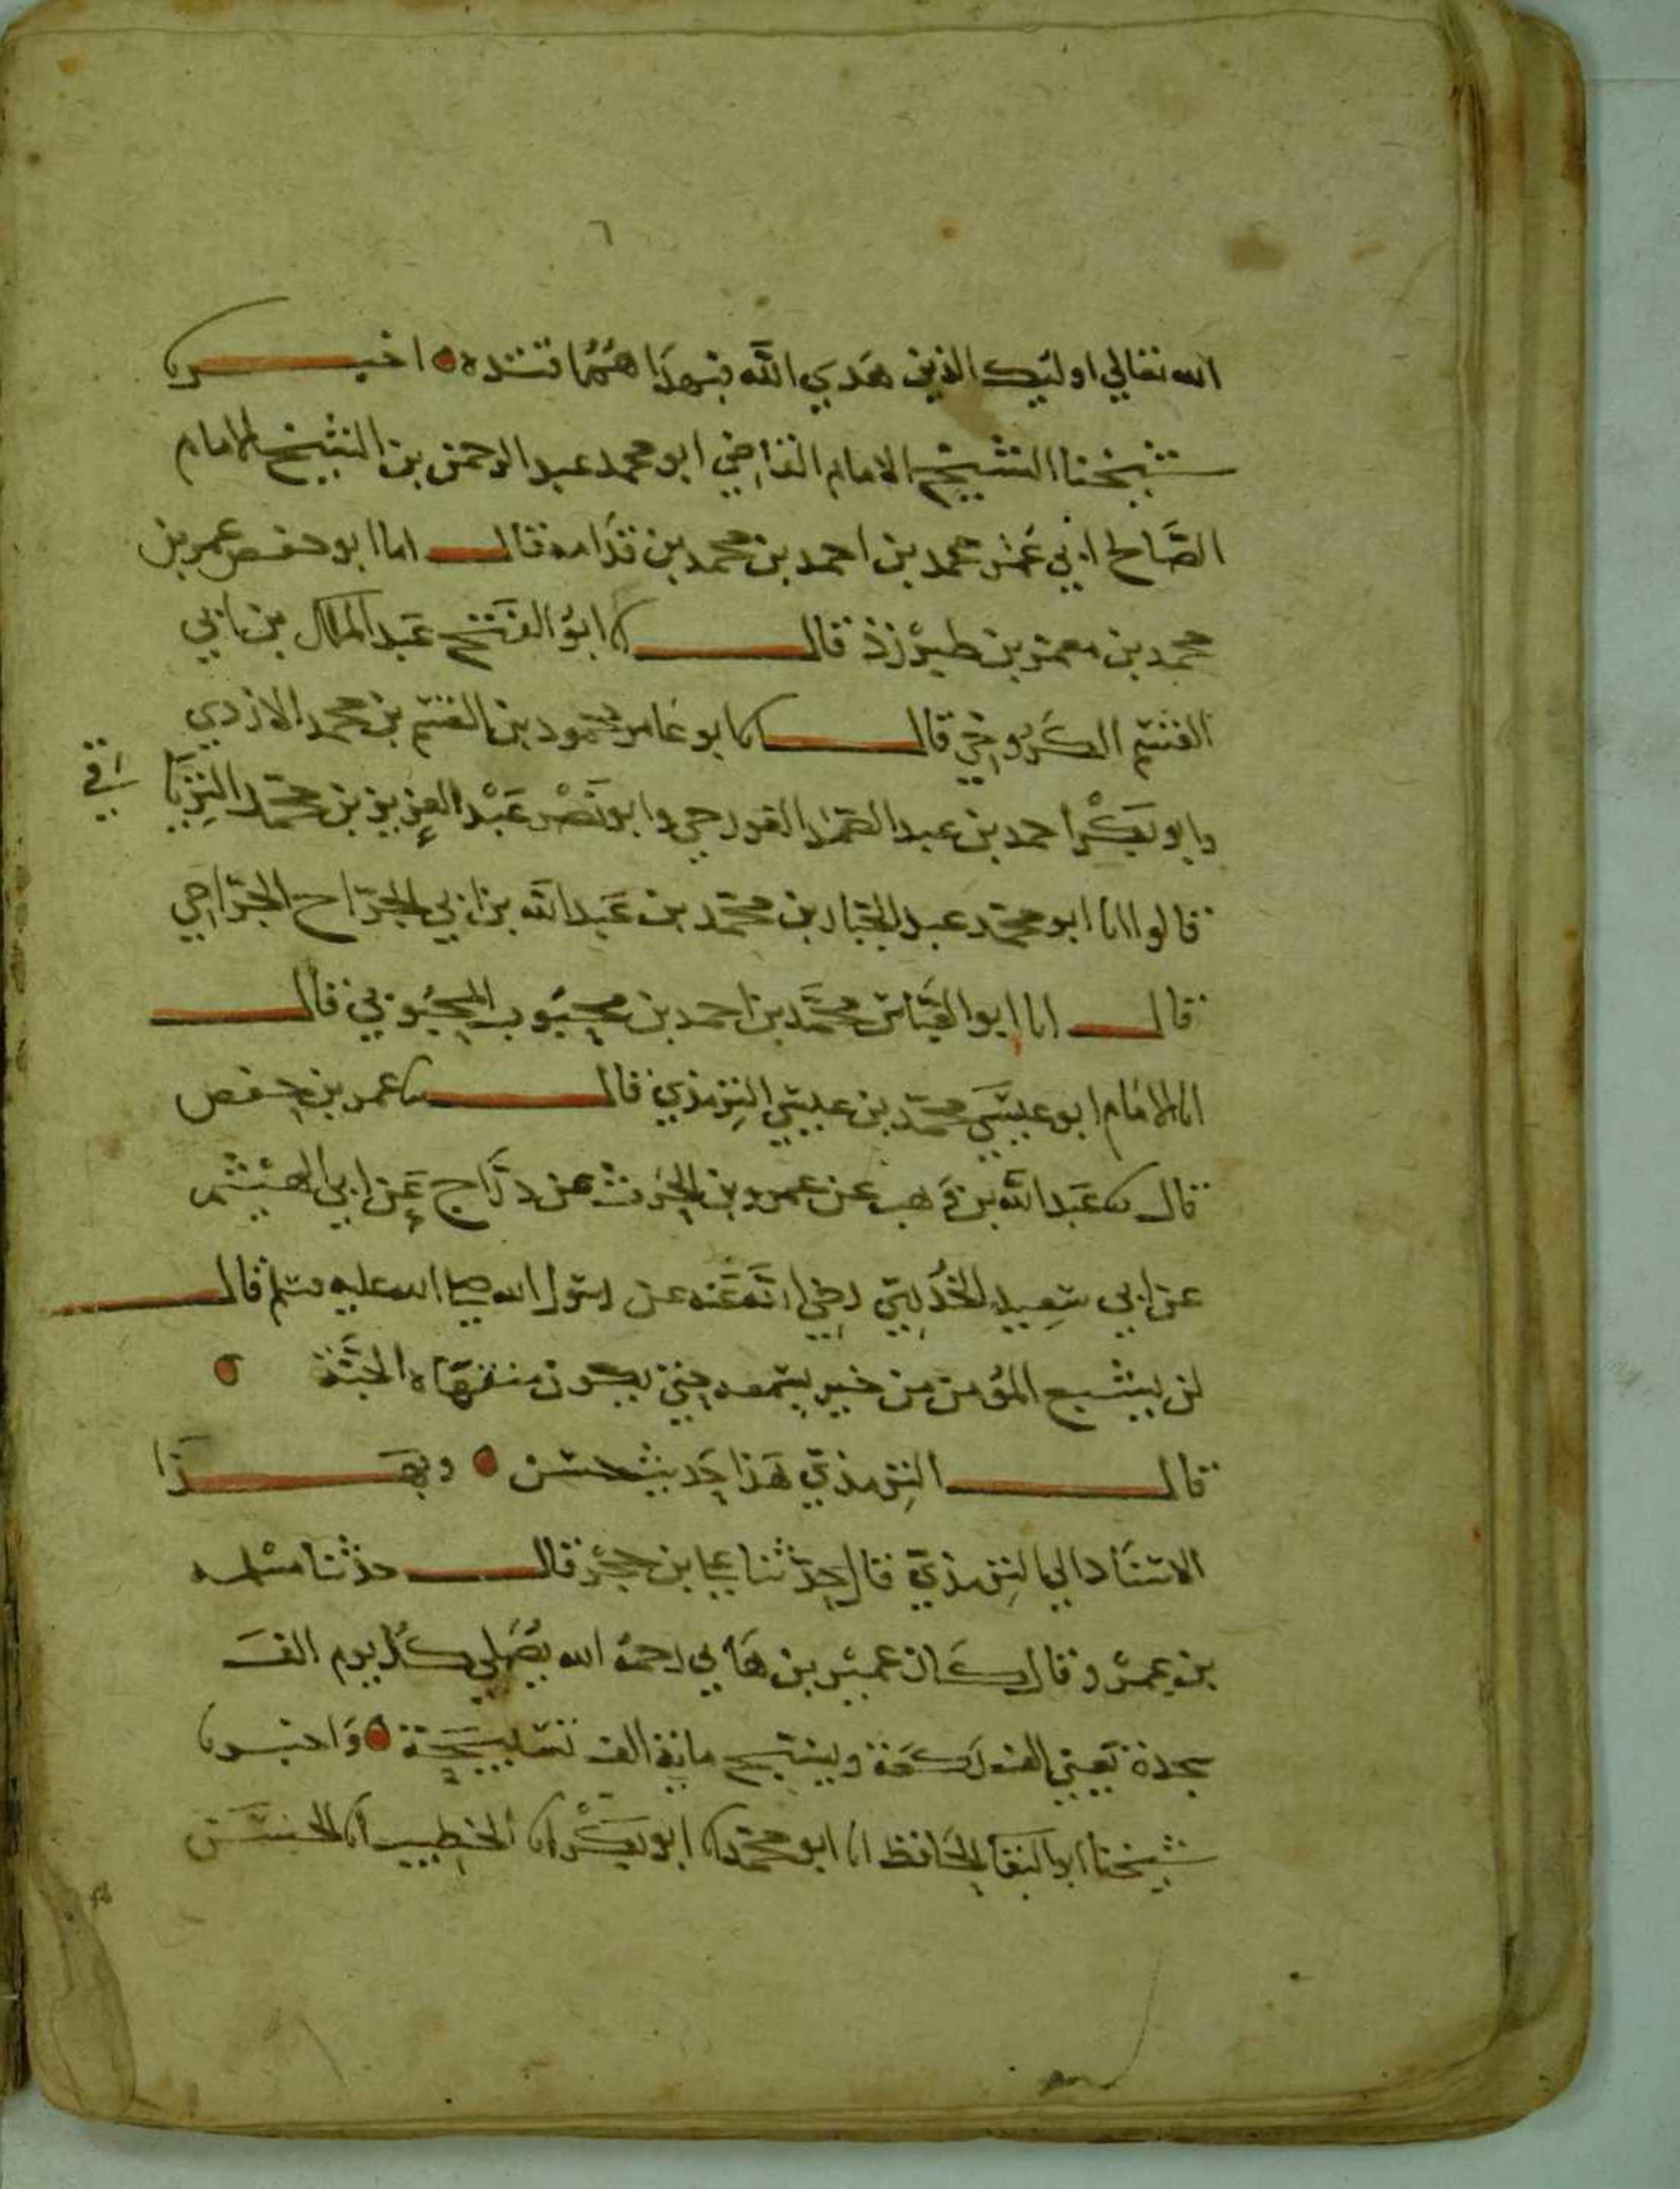 ٦
الله تعالي اوليك الذين هدي الله فبهداهم اقتده اخبرنا
شيخنا الشيخ الامام القاضي ابو محمد عبد الرحمن بن الشيخ الامام
الصالح ابي عمر محمد بن احمد بن محمد بن قدامه قال انا ابو حفص عمر بن
محمد بن معمر بن طبرزذ قال انا ابو الفتح عبد الملك بن ابي
القسم الكروخي قال انا ابو عامر محمود بن القسم بن محمد الازدي
وابو بكر احمد بن عبد الصمد الغورجي وابو نصر عبد العزيز بن محمد الترياقي
قالوا انا ابو محمد عبد الجبار بن محمد بن عبد الله بن ابي الجراح الجراحي
قال انا ابو العباس محمد بن احمد بن محبوب المحبوبي قال
انا الامام ابو عيسي محمد بن عيسي الترمذي قال ثنا عمر بن حفص
قال ثنا عبد الله بن وهب عن عمرو بن الحرث عن دراج عن ابي الهيثم
عن ابي سعيد الخدري رضي الله عنه عن رسول الله صلي الله عليه وسلم قال
لن يشبع المؤمن من خير يسمعه حتي يكون منتهاه الجنة
قال الترمذي هذا حديث حسن وبهذا
الاسناد الي الترمذي قال حدثنا علي بن حجر قال حدثنا مسلمه
بن عمرو قال كان عمير بن هاني رحمه الله يصلي كل يوم الف
سجدة يعني الف ركعة ويسبح ماية الف تسبيحة واخبرنا
شيخنا ابو البقا الحافظ انا ابو محمد انا ابو بكر انا الخطيب انا الحسن